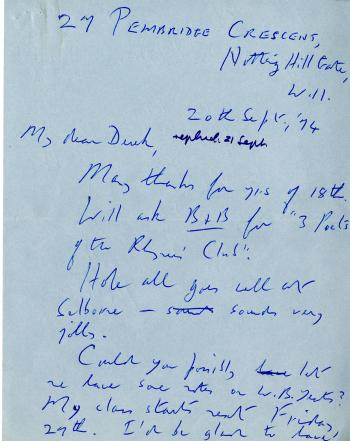 27 PEMBRIDGE CRESCENT,
Notting Hill Gate,
W.11.
20th Sept., '74
My dear Derek, replied: 21 Sept
Many thanks for yrs of 18th.
Will ask B & B for "3 Poets
of the Rhymers' Club".
Hope all goes well at
Selborne — sounds very
jolly.
Could you possibly let
me have some notes on W.B. Yeats?
My class starts next Friday,
27th. I'd be glad to have